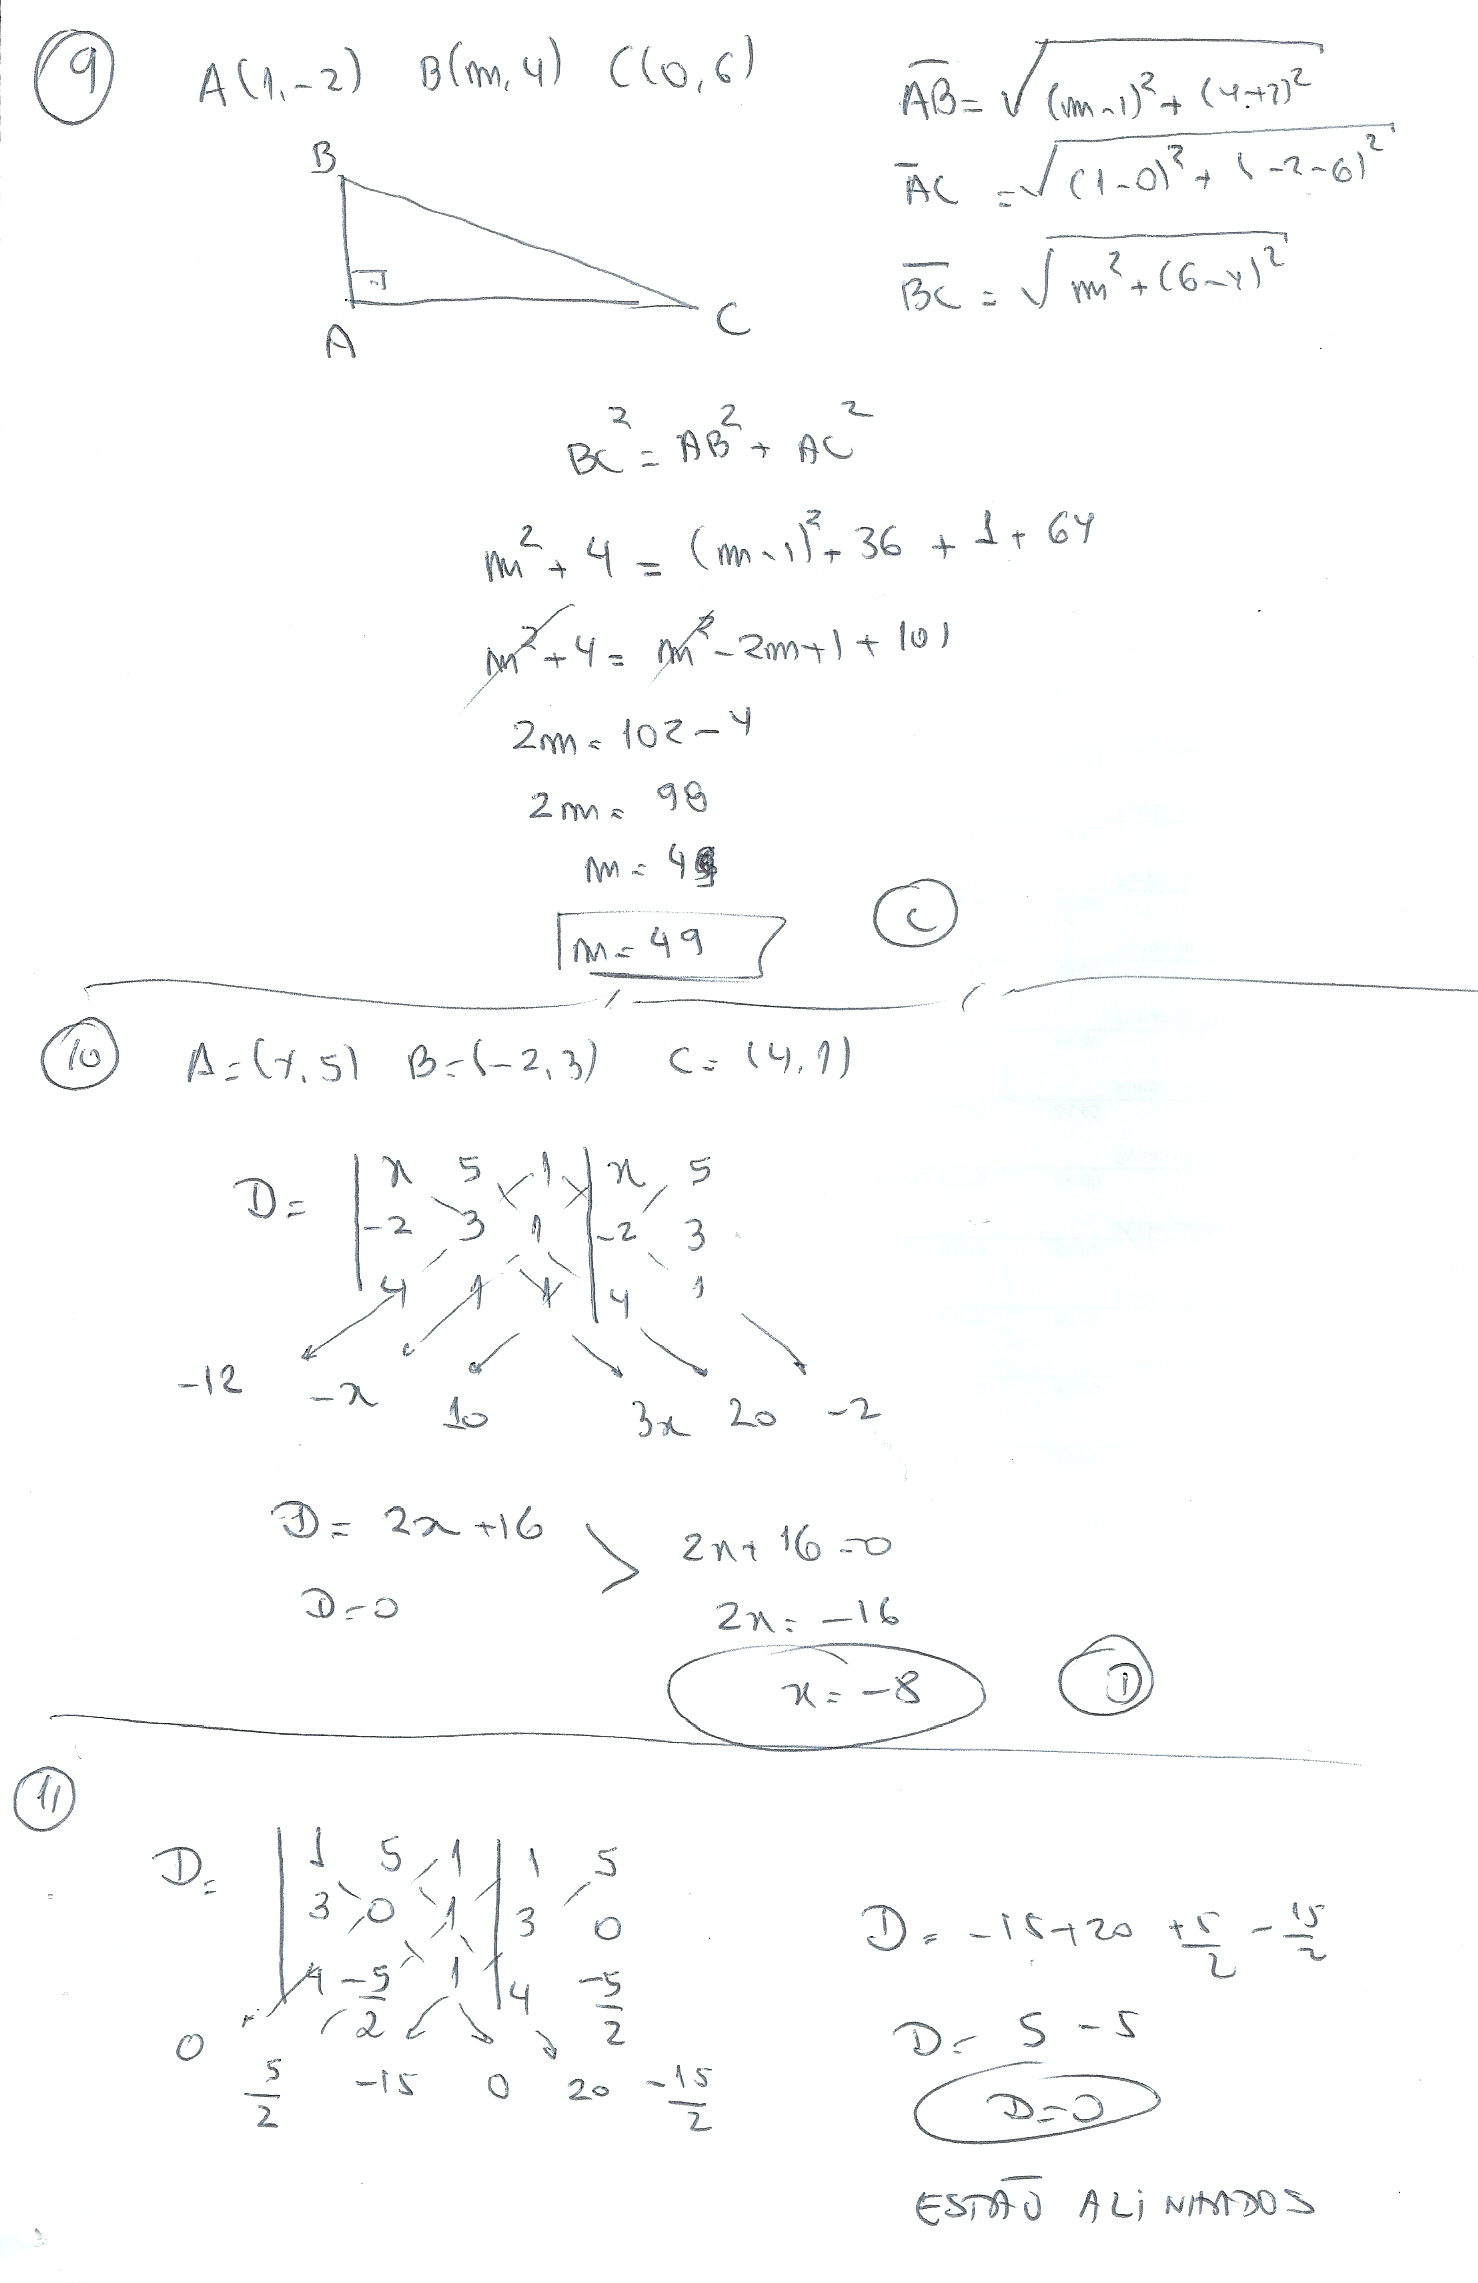 9 A(1,-2) B(m,4) C(0,6)
AB = √(m-1)² + (4+2)²
AC = √(1-0)² + (-2-6)²
BC = √m² + (6-4)²
B
A
C
BC² = AB² + AC²
m² + 4 = (m-1)² + 36 + 1 + 64
m² + 4 = m² - 2m + 1 + 101
2m = 102 - 4
2m = 98
m = 49
m = 49
C
10 A=(x,5) B=(-2,3) C=(4,1)
D= | x 5 1 | x 5
-2 3 1 | -2 3
4 1 1 | 4 1
-12 -x 10 3x 20 -2
D = 2x + 16
D = 0
2x + 16 = 0
2x = -16
x = -8
D
11
D= | 1 5 1 | 1 5
3 0 1 | 3 0
4 -5/2 1 | 4 -5/2
0 5/2 -15 0 20 -15/2
D = -15 + 20 + 5/2 - 15/2
D = 5 - 5
D = 0
ESTÃO ALINHADOS